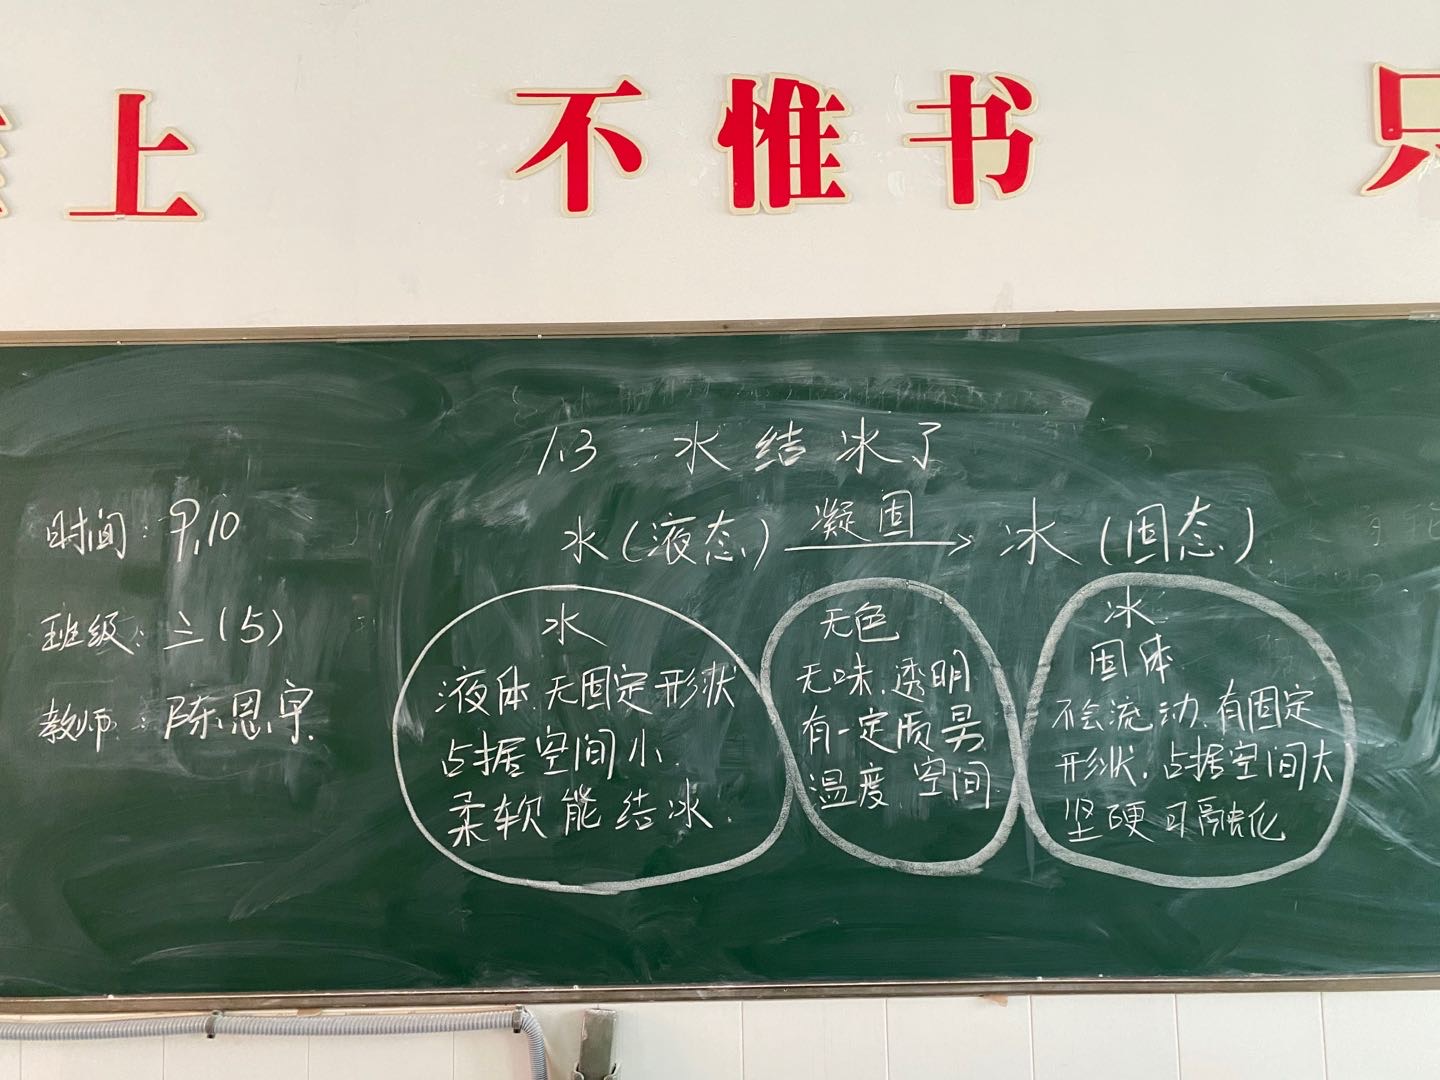 上 不惟书 只
1.3 水结冰了
时间：9.10
班级：三（5）
教师：陈恩宇
水（液态） 凝固 冰（固态）
水
液体、无固定形状
占据空间小
柔软 能结冰
无色
无味、透明
有一定质量
温度、空间
冰
固体
不会流动、有固定
形状、占据空间大
坚硬 可融化